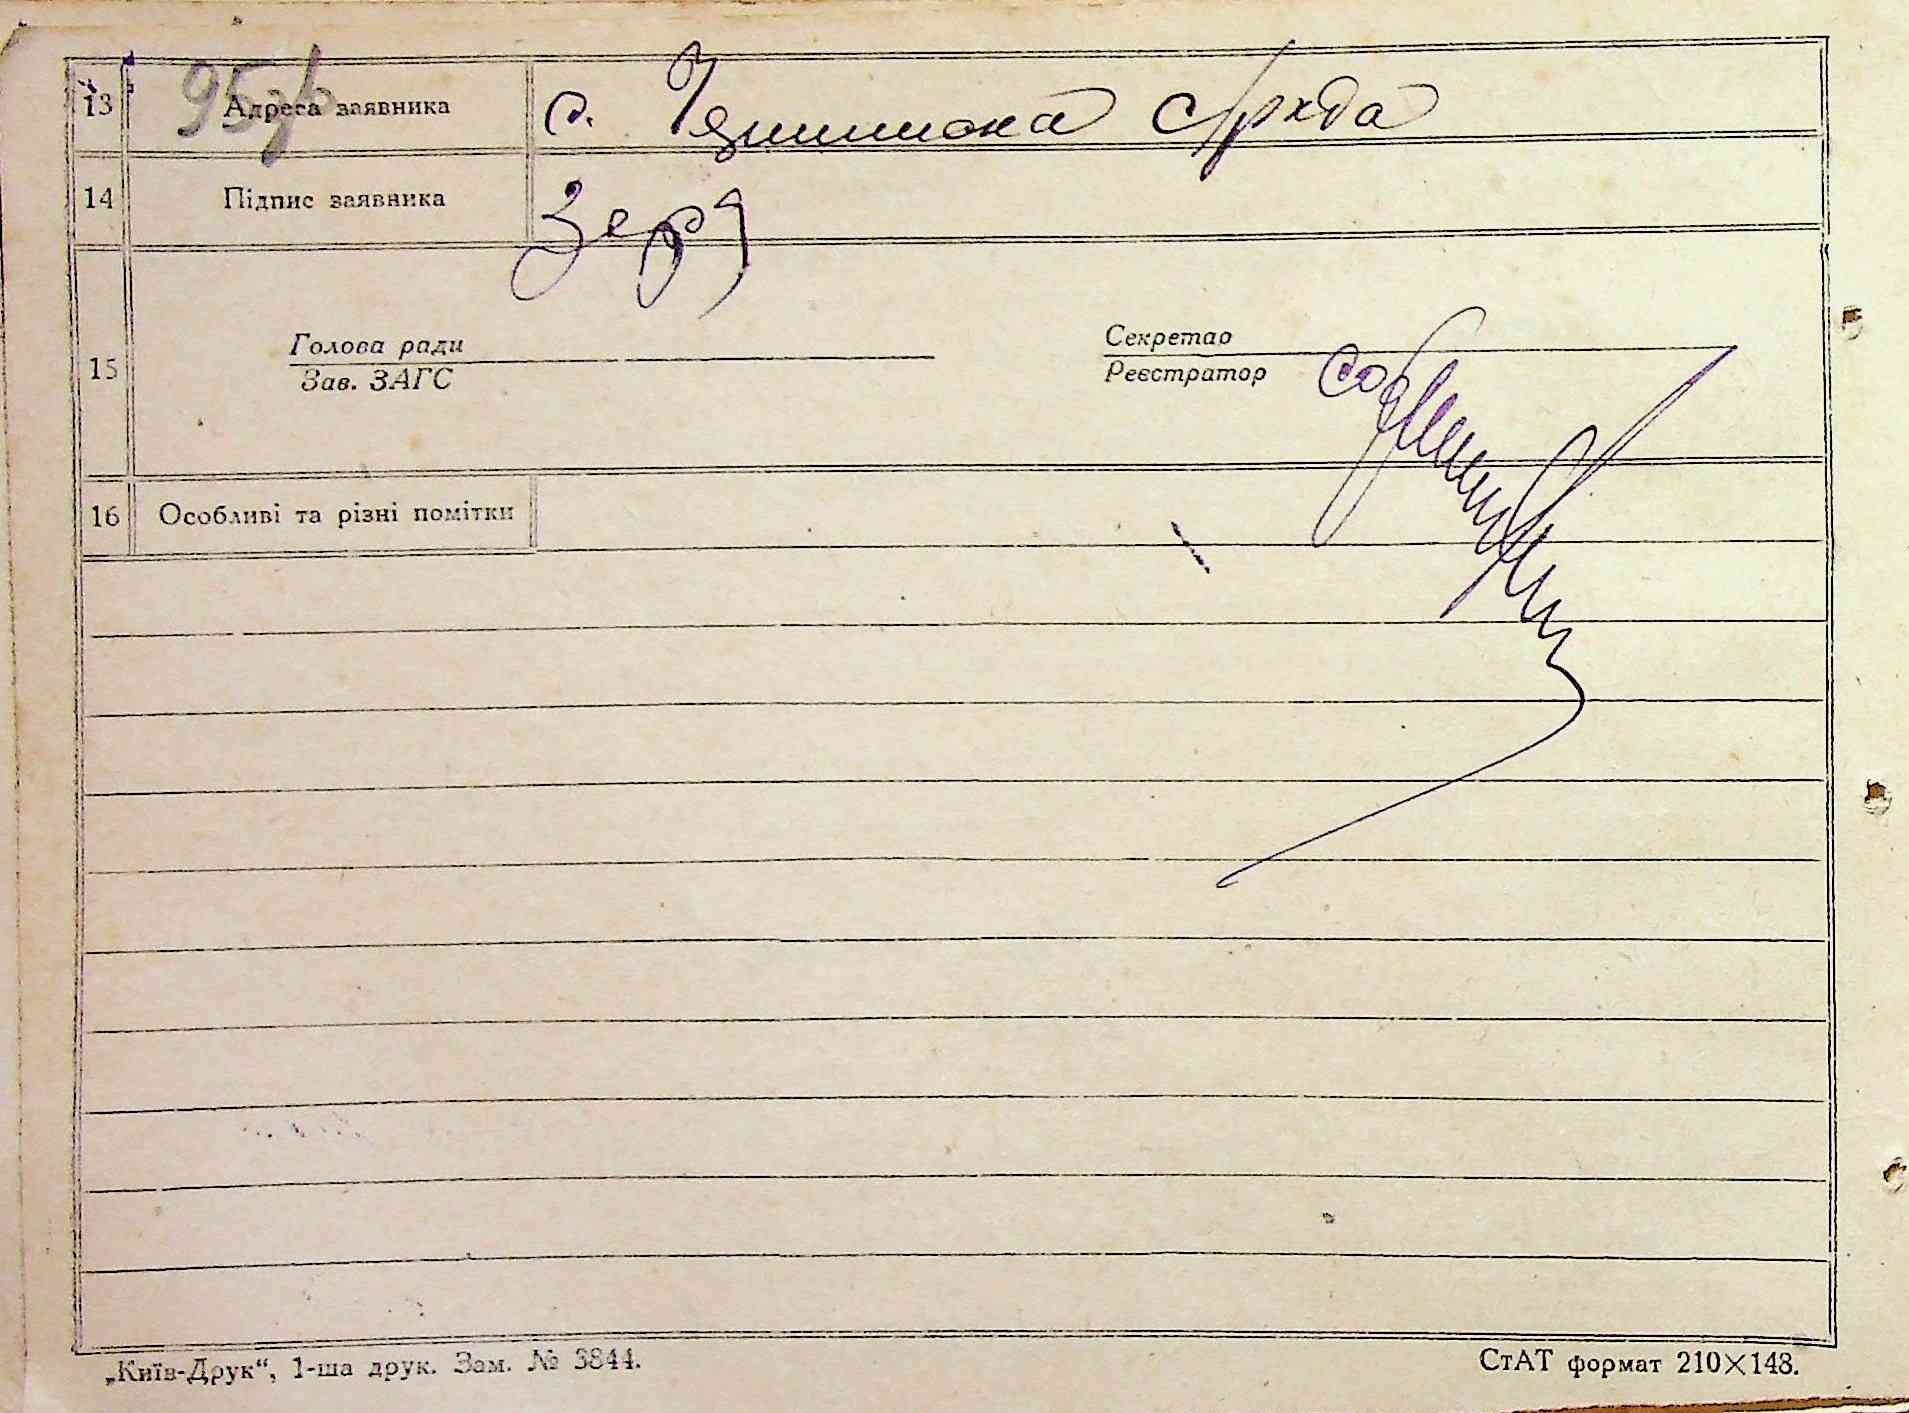 95зв
13 Адреса заявника с.
14 Підпис заявника Зеря
Голова ради Секретар
15
Зав. ЗАГС Реєстратор
16 Особливі та різні помітки
„Київ-Друк“, 1-ша друк. Зам. № 3844. СтАТ формат 210×148.